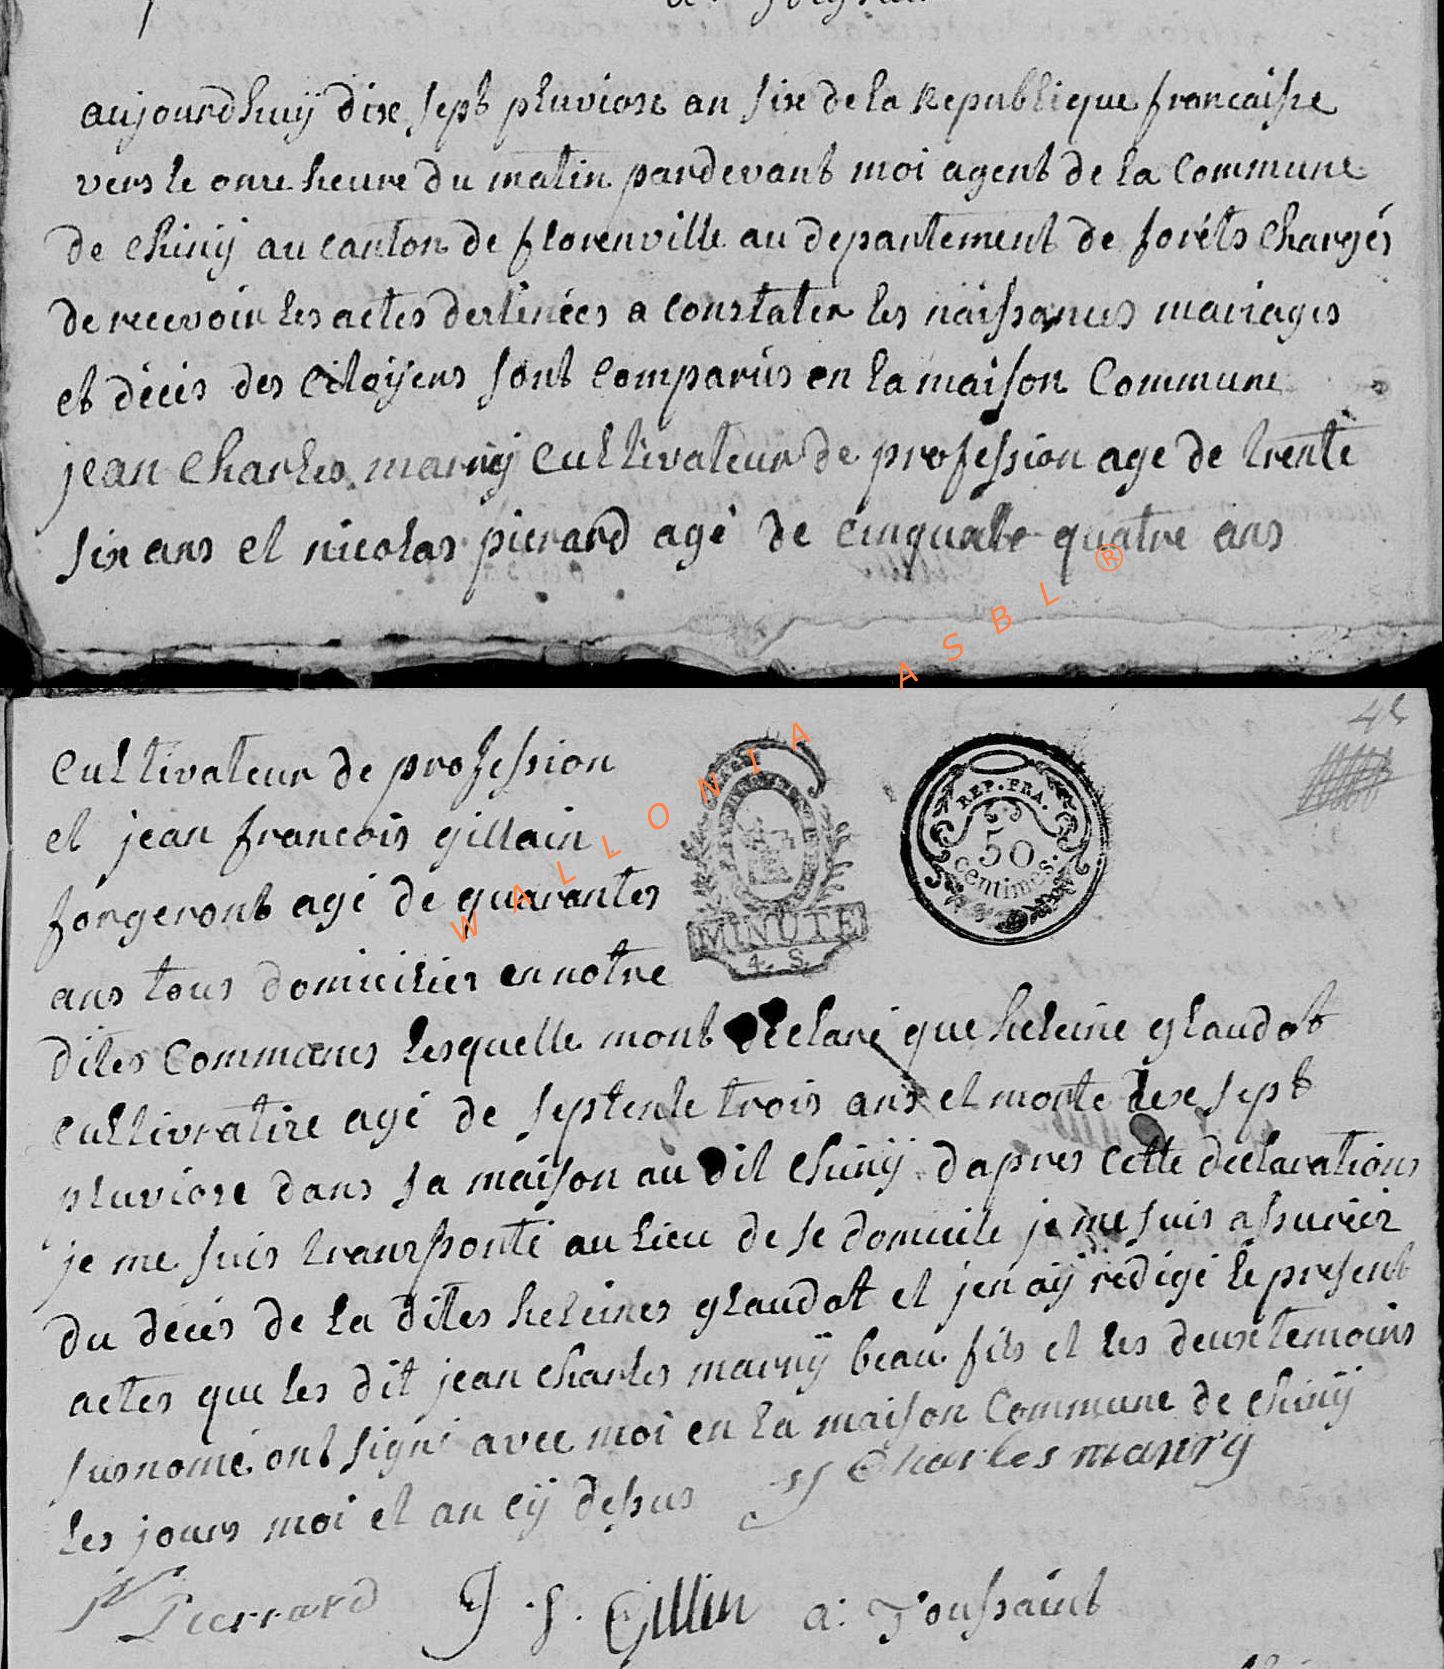 aujourdhuÿ dixe sept pluviose an sixe de la Republique francaisse
vers le onze heure du matin pardevant moi agent de la Commune
de Chinÿ au canton de florenville au departement de foréts Chargés
de recevoir les actes destinées a constater les naissances mariages
et décés des Citoÿens sont comparús en la maison Commune
jean Charles maurÿ Cultivateur de profession age de trente
sixe ans et nicolas pierard agé de cinquante quatre ans
Cultivateur de profession
et jean francois gillain
forgeront agé de quarantes
ans tous domicilier en notre
dites Communes lesquelle mont declaré que heleine glaudot
Cultivratire agé de septente trois ans et morte dixe sept
pluviose dans sa maison au dit Chinÿ dapres Cette declarations
je me suis transsporté au lieu de se domicile je me suis assuréer
du décés de la dites heleines glaudot et jen aÿ rédigé le present
actes que les dit jean Charles maurÿ beau fils et les deuxe temoins
susnomé ont signé avec moi en la maison Commune de Chinÿ
les jours moi et an cÿ dessus Charles maurÿ
N Pierrard J. f. Gillin a: Toussaint
MINUTE
4. S.
REP. FRA.
50
centimes.
WALLONIA ASBL ®